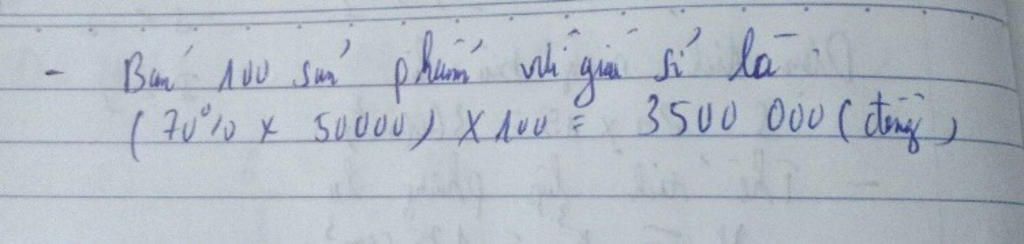 - Bán 100 sản phẩm với giá sỉ là:
(70% x 50000) x 100 = 3500 000 (đồng)